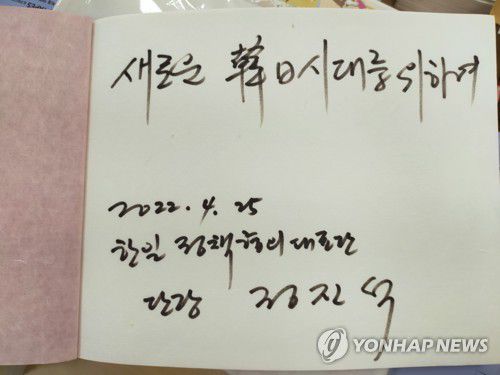 새로운 韓日시대를 위하여
2022. 4. 25
한일 정책협의대표단
단장 정진석
YONHAP NEWS